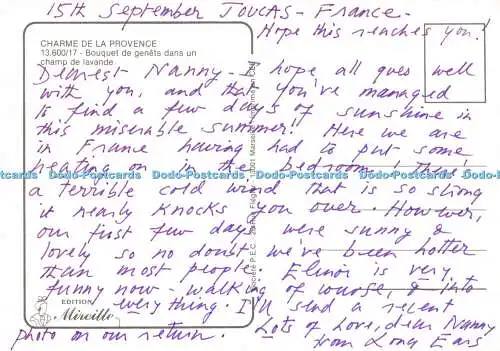 15th September JOUCAS - France -
Hope this reaches you!
CHARME DE LA PROVENCE
13.600/17 - Bouquet de genêts dans un
champ de lavande
Dearest Nanny - I hope all goes well
with you, and that you've managed
to find a few days of sunshine in
this miserable summer! Here we are
in France having had to put some
heating on in the bedroom! There's
a terrible cold wind that is so strong
it nearly knocks you over. However,
our first few days were sunny &
lovely so no doubt we've been hotter
than most people. Elinor is very
funny now - walking of course, & into
everything. I'll send a recent
photo on our return. Lots of Love, dear Nanny
from Long Ears
EDITION
Mireille
Société P.E.C.
Dodo-Postcards Dodo-Postcards Dodo-Postcards Dodo-Postcards Dodo-Postcards Dodo-Postcards